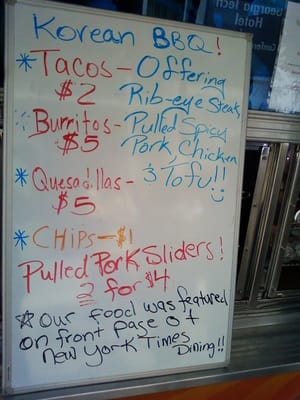 Georgia Tech
Hotel
Conference
Korean BBQ!
*Tacos - Offering
$2 Rib-eye Steak,
*Burritos - Pulled Spicy
$5 Pork, Chicken
*Quesadillas - & Tofu!!
$5
*CHIPS - $1
Pulled Pork Sliders!
2 for $4
☆ our food was featured
on front page of
New York Times
Dining!!